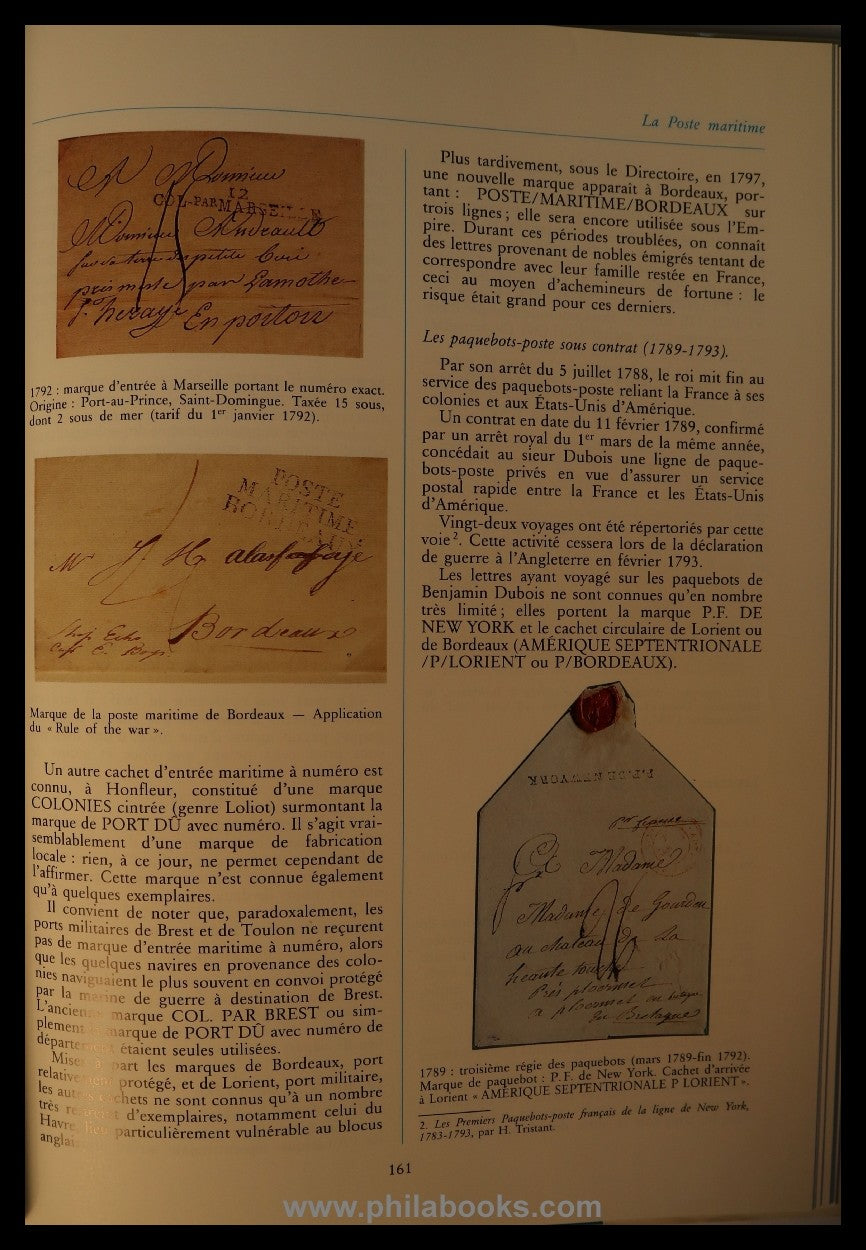 La Poste maritime
M Monsieur
12
COL-PAR MARSEILLE
Monsieur
par Lamothe
En poitou
1792 : marque d'entrée à Marseille portant le numéro exact.
Origine : Port-au-Prince, Saint-Domingue. Taxée 15 sous,
dont 2 sous de mer (tarif du 1er janvier 1792).
POSTE
MARITIME
BORDEAUX
Bordeaux
Marque de la poste maritime de Bordeaux — Application
du « Rule of the war ».
Un autre cachet d'entrée maritime à numéro est
connu, à Honfleur, constitué d'une marque
COLONIES cintrée (genre Loliot) surmontant la
marque de PORT DÛ avec numéro. Il s'agit vrai-
semblablement d'une marque de fabrication
locale : rien, à ce jour, ne permet cependant de
l'affirmer. Cette marque n'est connue également
qu'à quelques exemplaires.
Il convient de noter que, paradoxalement, les
ports militaires de Brest et de Toulon ne reçurent
pas de marque d'entrée maritime à numéro, alors
que les quelques navires en provenance des colo-
nies naviguaient le plus souvent en convoi protégé
par la marine de guerre à destination de Brest.
L'ancienne marque COL. PAR BREST ou sim-
plement marque de PORT DÛ avec numéro de
département étaient seules utilisées.
Mises à part les marques de Bordeaux, port
relativement protégé, et de Lorient, port militaire,
les autres cachets ne sont connus qu'à un nombre
très d'exemplaires, notamment celui du
Havre particulièrement vulnérable au blocus
anglais
Plus tardivement, sous le Directoire, en 1797,
une nouvelle marque apparait à Bordeaux, por-
tant : POSTE/MARITIME/BORDEAUX sur
trois lignes ; elle sera encore utilisée sous l'Em-
pire. Durant ces périodes troublées, on connait
des lettres provenant de nobles émigrés tentant de
correspondre avec leur famille restée en France,
ceci au moyen d'achemineurs de fortune : le
risque était grand pour ces derniers.
Les paquebots-poste sous contrat (1789-1793).
Par son arrêt du 5 juillet 1788, le roi mit fin au
service des paquebots-poste reliant la France à ses
colonies et aux États-Unis d'Amérique.
Un contrat en date du 11 février 1789, confirmé
par un arrêt royal du 1er mars de la même année,
concédait au sieur Dubois une ligne de paque-
bots-poste privés en vue d'assurer un service
postal rapide entre la France et les États-Unis
d'Amérique.
Vingt-deux voyages ont été répertoriés par cette
voie 2. Cette activité cessera lors de la déclaration
de guerre à l'Angleterre en février 1793.
Les lettres ayant voyagé sur les paquebots de
Benjamin Dubois ne sont connues qu'en nombre
très limité ; elles portent la marque P.F. DE
NEW YORK et le cachet circulaire de Lorient ou
de Bordeaux (AMÉRIQUE SEPTENTRIONALE
/P/LORIENT ou P/BORDEAUX).
P.F. DE NEWYORK
A Madame
Madame de Gourdon
au chateau de La
Bretagne
1789 : troisième régie des paquebots (mars 1789-fin 1792).
Marque de paquebot : P.F. de New York. Cachet d'arrivée
à Lorient « AMÉRIQUE SEPTENTRIONALE P LORIENT ».
2. Les Premiers Paquebots-poste français de la ligne de New York,
1783-1793, par H. Tristant.
161
www.philabooks.com